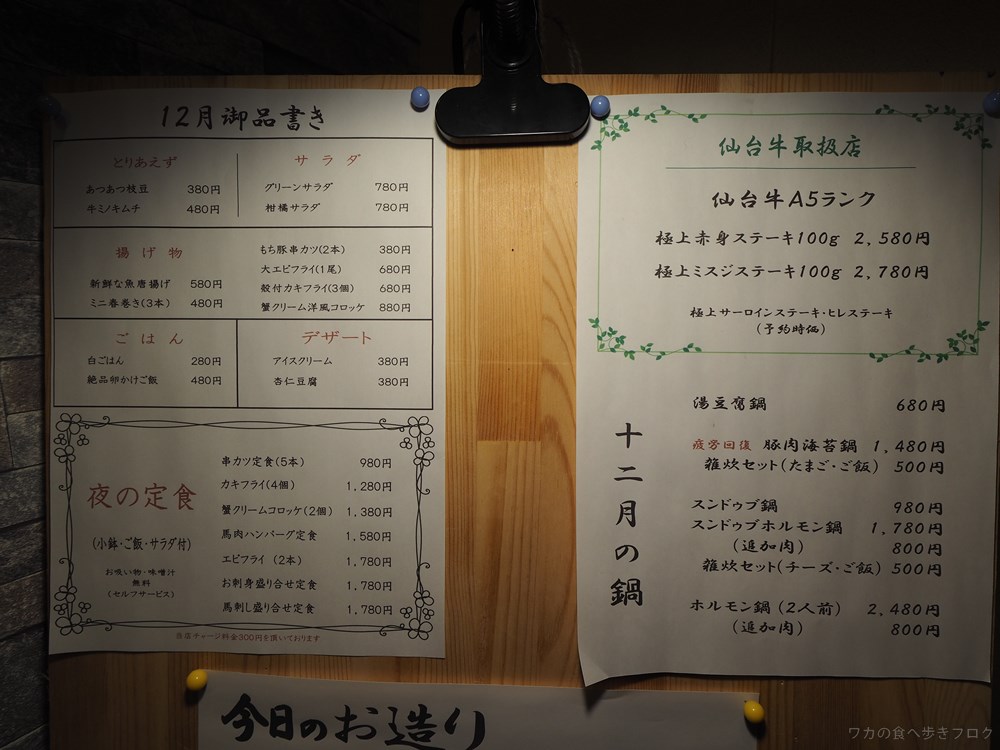 12月御品書き
とりあえず
あつあつ枝豆 380円
牛ミノキムチ 480円
サラダ
グリーンサラダ 780円
柑橘サラダ 780円
揚げ物
新鮮な魚唐揚げ 580円
ミニ春巻き(3本) 480円
もち豚串カツ(2本) 380円
大エビフライ(1尾) 680円
殻付カキフライ(3個) 680円
蟹クリーム洋風コロッケ 880円
ごはん
白ごはん 280円
絶品卵かけご飯 480円
デザート
アイスクリーム 380円
杏仁豆腐 380円
夜の定食
(小鉢・ご飯・サラダ付)
お吸い物・味噌汁
無料
(セルフサービス)
串カツ定食(5本) 980円
カキフライ(4個) 1,280円
蟹クリームコロッケ(2個) 1,380円
馬肉ハンバーグ定食 1,580円
エビフライ (2本) 1,780円
お刺身盛り合せ定食 1,780円
馬刺し盛り合せ定食 1,780円
当店チャージ料金300円を頂いております
仙台牛取扱店
仙台牛A5ランク
極上赤身ステーキ100g 2,580円
極上ミスジステーキ100g 2,780円
極上サーロインステーキ・ヒレステーキ
(予約時価)
十二月の鍋
湯豆腐鍋 680円
疲労回復 豚肉海苔鍋 1,480円
雑炊セット(たまご・ご飯) 500円
スンドゥブ鍋 980円
スンドゥブホルモン鍋 1,780円
(追加肉) 800円
雑炊セット(チーズ・ご飯) 500円
ホルモン鍋(2人前) 2,480円
(追加肉) 800円
今日のお造り
ワカの食べ歩きブログ